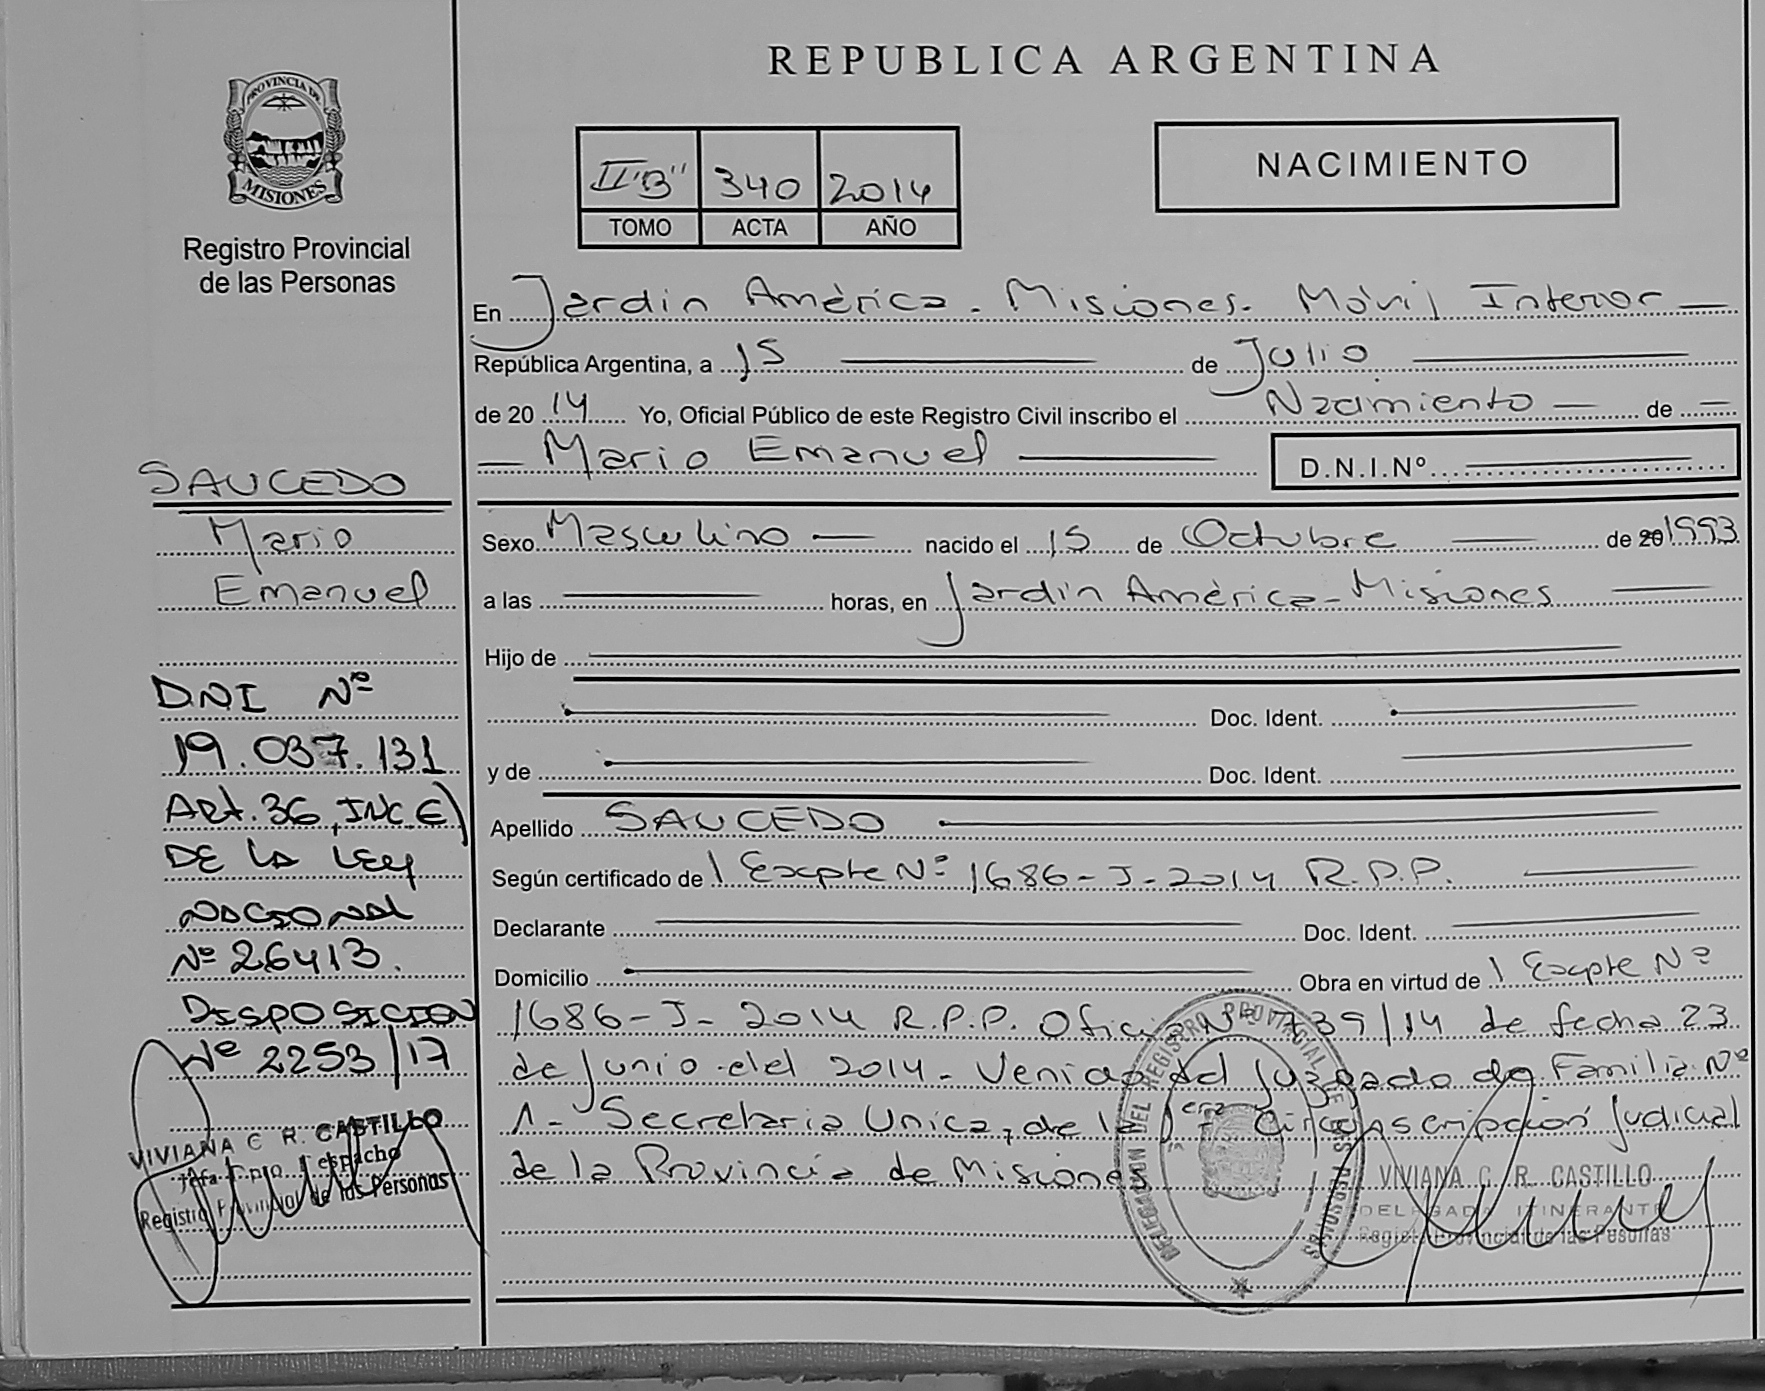 REPUBLICA ARGENTINA
PROVINCIA DE
MISIONES
Registro Provincial
de las Personas
II "B" 340 2014
TOMO ACTA AÑO
NACIMIENTO
En Jardin América - Misiones. Móvil Interior
República Argentina, a 15 de Julio
de 2014 Yo, Oficial Público de este Registro Civil inscribo el Nacimiento de
Mario Emanuel D.N.I.Nº
Sexo Masculino nacido el 15 de Octubre de 20 1993
a las horas, en Jardín América - Misiones
Hijo de
Doc. Ident.
y de Doc. Ident.
Apellido SAUCEDO
Según certificado de / Expte Nº 1686-J-2014 R.P.P.
Declarante Doc. Ident.
Domicilio Obra en virtud de / Expte Nº
1686-J-2014 R.P.P. Oficio Nº 39/14 de fecha 23
de Junio del 2014 - Venido del Juzgado de Familia Nº
1- Secretaria Unica, de la 1era Circunscripción Judicial
de la Provincia de Misiones
DELEGACION DEL REGISTRO PROVINCIAL DE LAS PERSONAS
VIVIANA C. R. CASTILLO
DELEGADA ITINERANTE
Registro Provincial de las Personas
SAUCEDO
Mario
Emanuel
DNI Nº
19.037.131
Art. 36, INC E)
DE LA LEY
NACIONAL
Nº 26413.
DISPOSICION
Nº 2253/17
VIVIANA C R. CASTILLO
Jefa Dpto. Despacho
Registro Provincial de las Personas